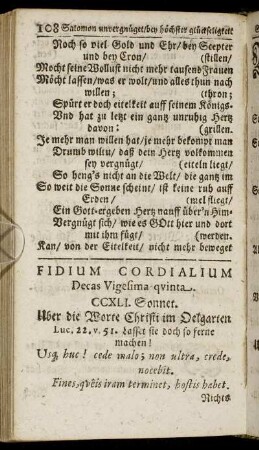 108 Salomon unvergnüget/bey höchster glückseligkeit
Noch so viel Gold und Ehr/bey Scepter
und bey Cron/ (stillen/
Mocht seine Wollust nicht mehr tausend Frauen
Mocht lassen/was er wolt/und alles thun nach
willen; (thron;
Spürt er doch eitelkeit auff seinem Königs-
Und hat zu letzt ein gantz unruhig Hertz
davon: (grillen.
Je mehr man willen hat/je mehr bekompt man
Drumb wiltu/ daß dein Hertz volkommen
sey vergnügt/ (eiteln liegt/
So heng's nicht an die Welt/ die gantz im
So weit die Sonne scheint/ ist keine ruh auff
Erden/ (mel fliegt/
Ein Gott-ergeben Hertz nauff über'n Him-
Vergnügt sich/ wie es GOtt hier und dort
mit ihm fügt/ (werden.
Kan/ von der Eitelkeit/ nicht mehr beweget
FIDIUM CORDIALIUM
Decas Vigesima qvinta.
CCXLI. Sonnet.
Uber die Worte Christi im Oelgarten
Luc. 22. v. 51. Lasset sie doch so ferne
machen!
Usq; huc! cede malo; non ultra, crede,
nocebit.
Fines, qvêis iram terminet, hostis habet.
Nichts